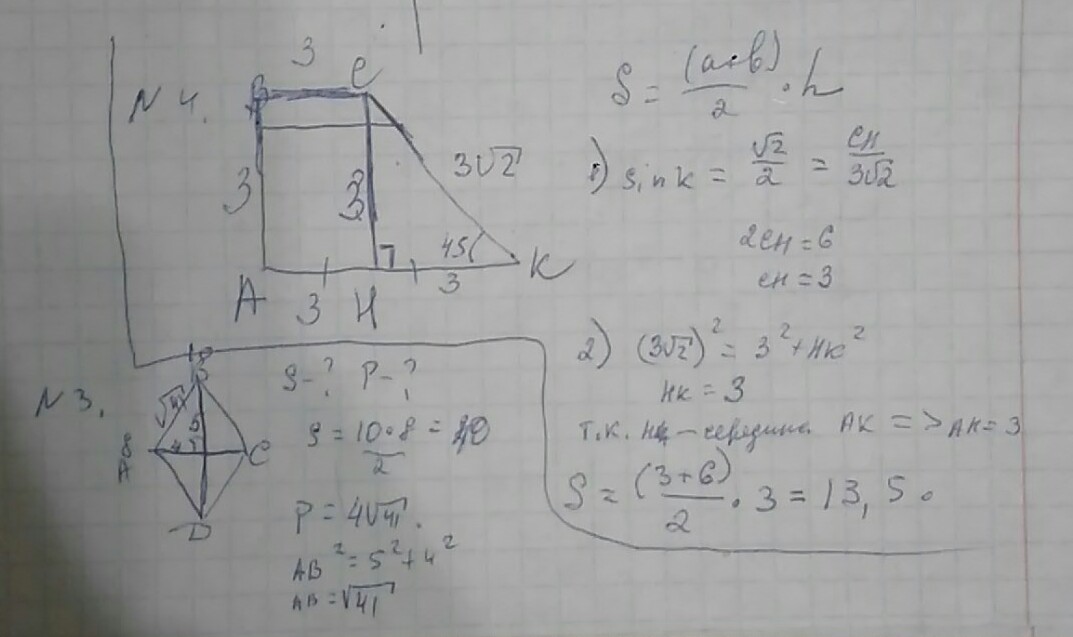 N 4.
3
B C
3
3
3√2
45
A 3 H 3 K
S = (a+b)/2 · h
1) sin K = √2/2 = CH/3√2
2CH = 6
CH = 3
2) (3√2)² = 3² + HK²
HK = 3
т.к. H – середина AK => AH = 3
S = (3+6)/2 · 3 = 13,5.
N 3.
10
B
√41
5
8
4
A C
D
S - ? P - ?
S = 10·8/2 = 40
P = 4√41.
AB² = 5² + 4²
AB = √41